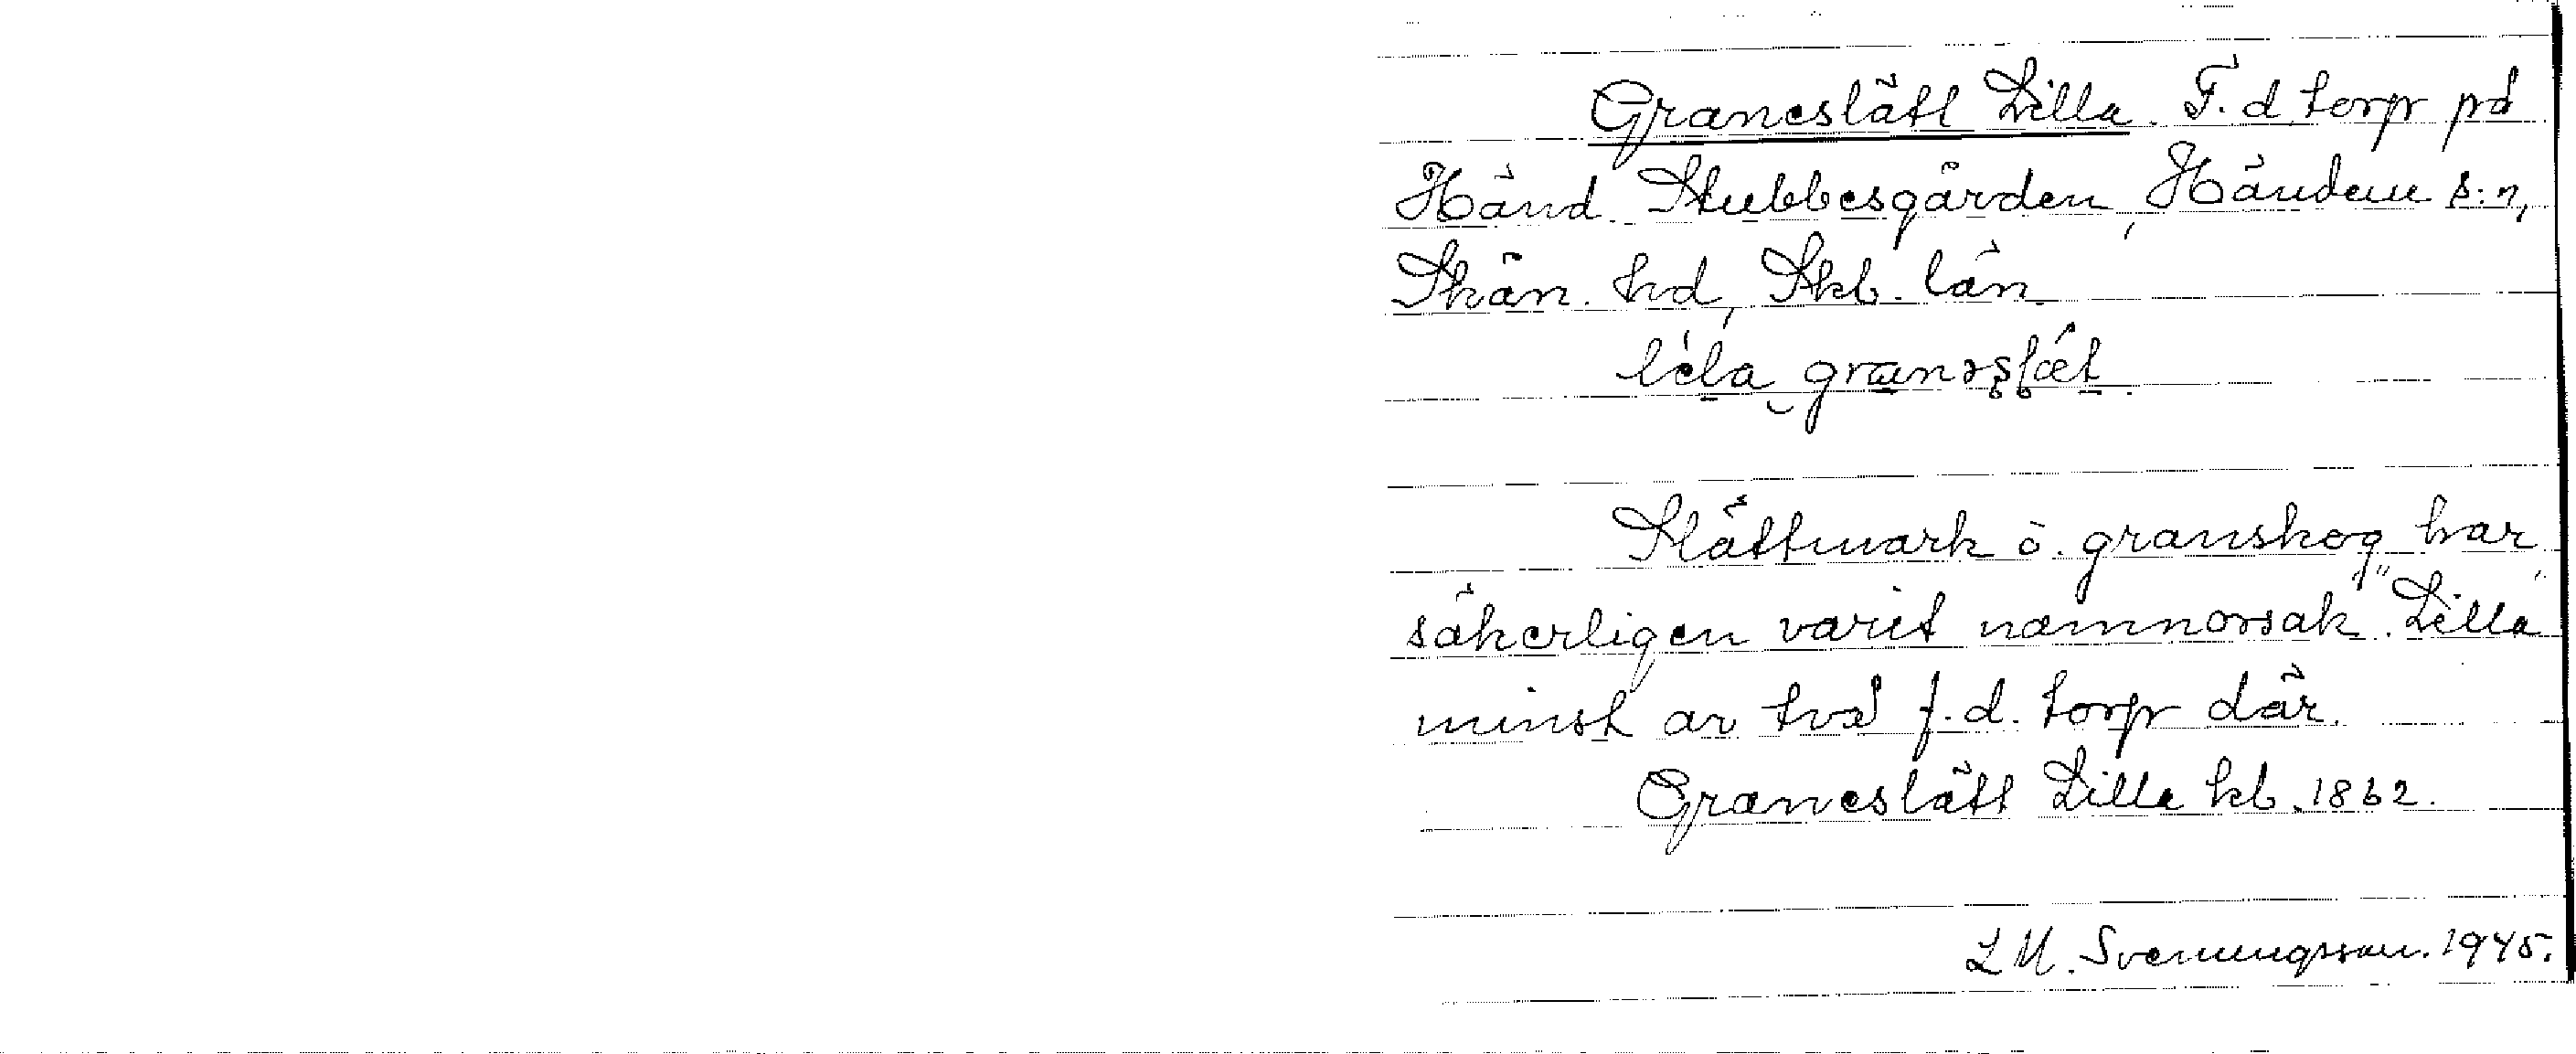 Graneslätt Lilla. F.d. torp på
Händ. Stubbesgården, Händene s:n,
Skån. hd, Skb. län.
Slättmark o. granskog har
säkerligen varit namnorsak. "Lilla"
minst av två f.d. torp där.
Graneslätt Lilla kb. 1862.
L M. Svenungsson. 1945.